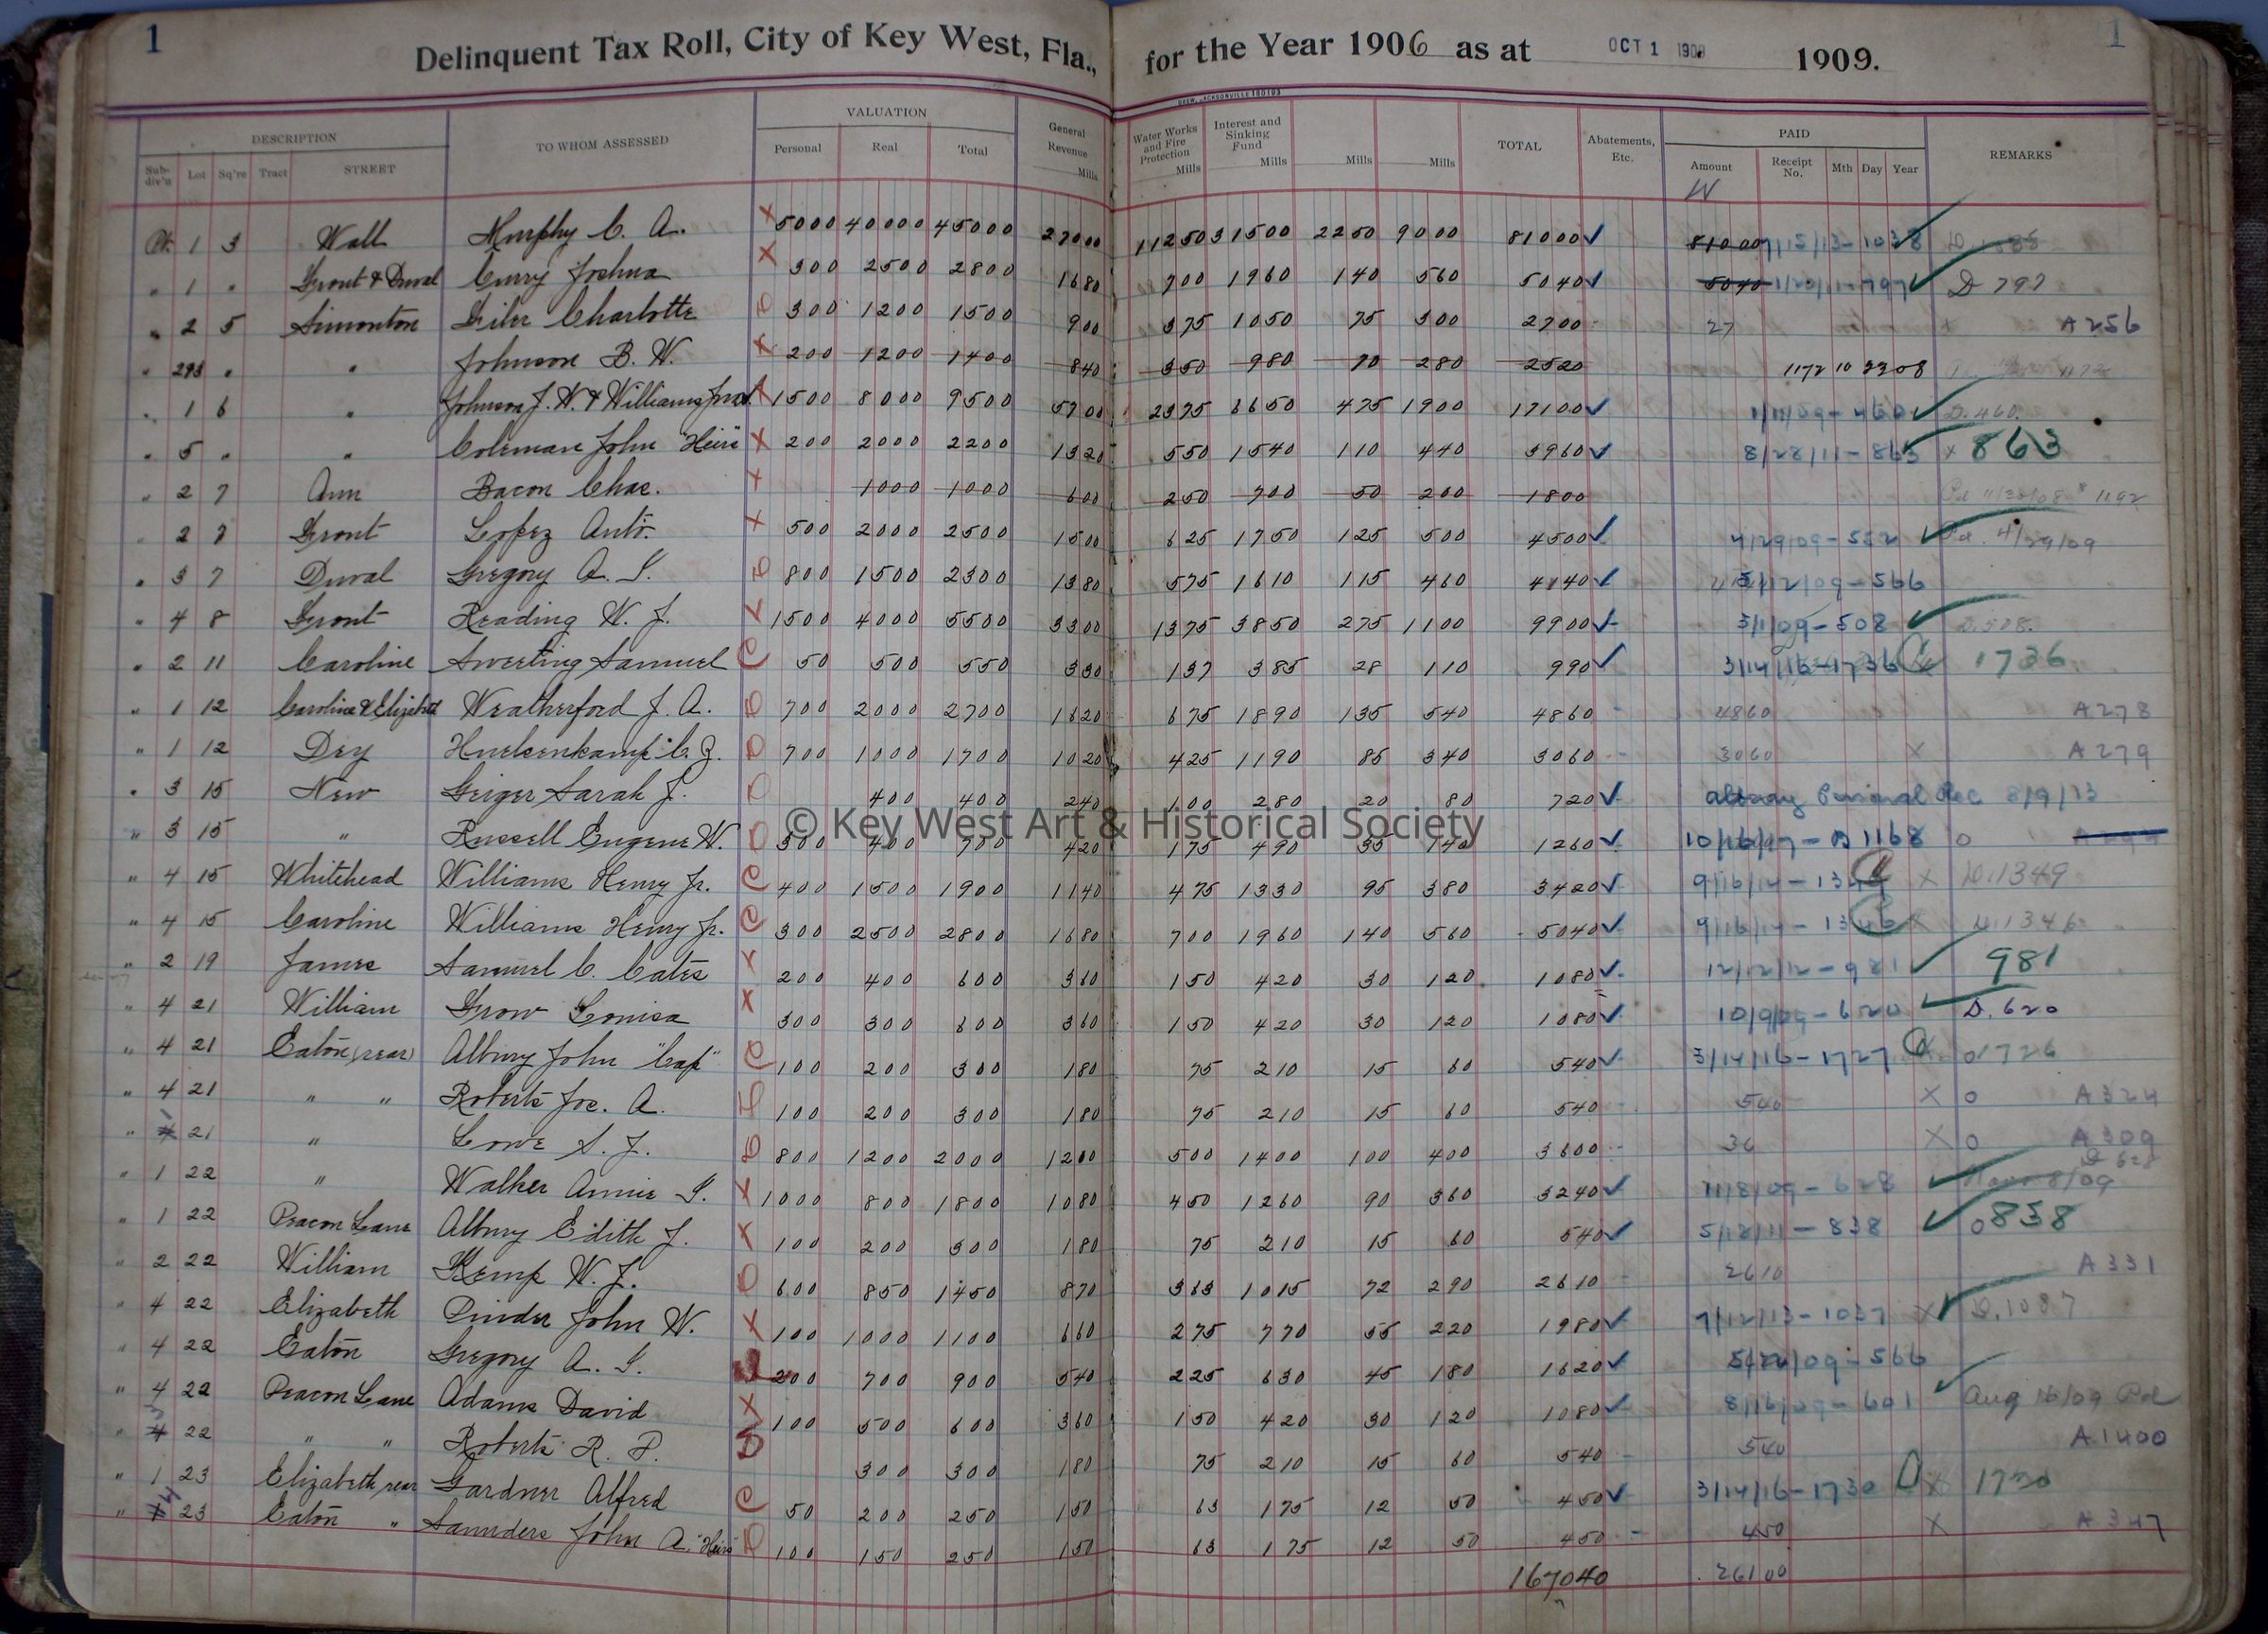 1 1
Delinquent Tax Roll, City of Key West, Fla., for the Year 1906 as at OCT 1 1909 1909.
DREW, JACKSONVILLE
DESCRIPTION TO WHOM ASSESSED VALUATION General Revenue Mills Water Works and Fire Protection Mills Interest and Sinking Fund Mills Mills Mills TOTAL Abatements, Etc. PAID REMARKS
Sub-div'n Lot Sq're Tract STREET Personal Real Total Amount Receipt No. Mth Day Year
Pt. 1 3 Wall Murphy C. A. X 5000 40000 45000 27000 11250 31500 2250 9000 81000 ✓ 81000 7/15/13-1038
" 1 " Front & Duval Curry Joshua X 300 2500 2800 1680 700 1960 140 560 5040 ✓ 5040 797 D 797
" 2 5 Simonton Filer Charlotte D 300 1200 1500 900 375 1050 75 300 2700 27 x A 256
" 293 " " Johnson B. W. X 200 1200 1400 840 350 980 70 280 2520 1172 10 23 08
" 1 6 " Johnson J. W. & Williams X 1500 8000 9500 5700 2375 6650 475 1900 17100 ✓ 1/11/09-460 ✓ D. 460.
" 5 " " Coleman John "Heirs" X 200 2000 2200 1320 550 1540 110 440 3960 ✓ 8/28/11-863 x 863
" 2 7 Ann Bacon Chas. X 1000 1000 600 250 700 50 200 1800 1192
" 2 7 Front Lopez Anto. X 500 2000 2500 1500 625 1750 125 500 4500 ✓ 4/29/09-552 ✓ Pd. 4/29/09
" 3 7 Duval Gregory A. S. D 800 1500 2300 1380 575 1610 115 460 4140 ✓ 5/12/09-566
" 4 8 Front Reading W. J. X 1500 4000 5500 3300 1375 3850 275 1100 9900 ✓ 3/1/09-508 ✓ D. 508.
" 2 11 Caroline Sweeting Samuel C 50 500 550 330 137 385 28 110 990 ✓ 3/14/16-1736 1736
" 1 12 Caroline & Elizabeth Weatherford J. A. D 700 2000 2700 1620 675 1890 135 540 4860 4860 A 278
" 1 12 Dey Huelsenkamp C. J. D 700 1000 1700 1020 425 1190 85 340 3060 3060 x A 279
" 3 15 New Geiger Sarah J. D 400 400 240 100 280 20 80 720 ✓ Personal Rec 8/9/13
" 3 15 " Russell Eugene W. D 300 400 700 420 175 490 35 140 1260 ✓ 10/16/17-D 1168 0
" 4 15 Whitehead Williams Henry Jr. C 400 1500 1900 1140 475 1330 95 380 3420 ✓ 9/16/14-1349 x D. 1349
" 4 15 Caroline Williams Henry Jr. C 300 2500 2800 1680 700 1960 140 560 5040 ✓ 9/16/14-1346 x D. 1346
" 2 19 James Samuel C. Cates X 200 400 600 360 150 420 30 120 1080 ✓ 12/12/12-981 ✓ 981
" 4 21 William Frow Louisa X 300 300 600 360 150 420 30 120 1080 ✓ 10/9/09-620 ✓ D. 620
" 4 21 Eaton (rear) Albury John "Cap" C 100 200 300 180 75 210 15 60 540 ✓ 3/14/16-1727 0 1726
" 4 21 " " Roberts Jos. A. D 100 200 300 180 75 210 15 60 540 540 X 0 A 324
" 1 21 " Lowe S. J. D 800 1200 2000 1200 500 1400 100 400 3600 36 X 0 A 309
" 1 22 " Walker Annie S. X 1000 800 1800 1080 450 1260 90 360 3240 ✓ 11/8/09-628 ✓ D 628 8/09
" 1 22 Peacon Lane Albury Edith J. X 100 200 300 180 75 210 15 60 540 ✓ 5/18/11-838 ✓ 0 838
" 2 22 William Kemp W. J. D 600 850 1450 870 363 1015 72 290 2610 2610 A 331
" 4 22 Elizabeth Pinder John W. X 100 1000 1100 660 275 770 55 220 1980 ✓ 7/12/13-1037 x ✓ D. 1087
" 4 22 Eaton Gregory A. S. D 200 700 900 540 225 630 45 180 1620 ✓ 5/22/09-566
" 4 22 Peacon Lane Adams David X 100 500 600 360 150 420 30 120 1080 ✓ 8/16/09-601 ✓ Aug 16/09 Pd
" 22 " " Roberts R. P. D 300 300 180 75 210 15 60 540 540 A 1400
" 1 23 Elizabeth rear Gardner Alfred C 50 200 250 150 63 175 12 50 450 ✓ 3/14/16-1730 x 1730
" 4 23 Eaton " Saunders John A. "Heirs" D 100 150 250 150 63 175 12 50 450 450 X A 347
167040 26100
© Key West Art & Historical Society